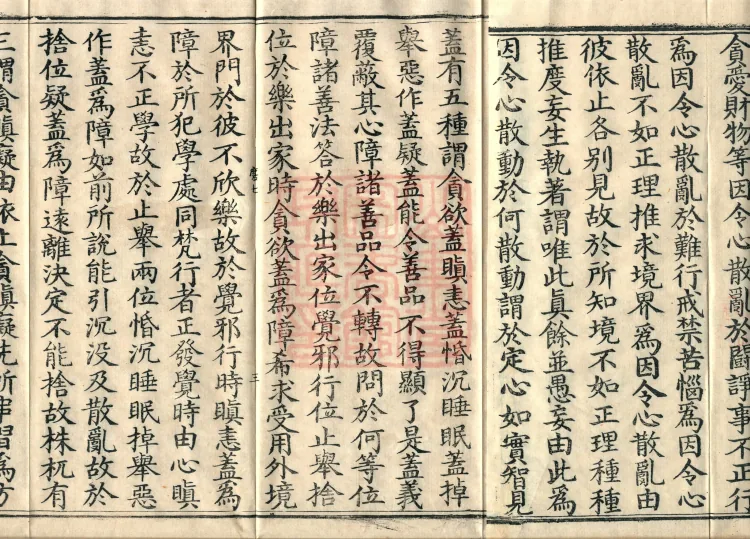 貪愛財物等因令心散亂於鬪諍事不正行
爲因令心散亂於難行戒禁苦惱爲因令心
散亂不如正理推求境界爲因令心散亂由
彼依止各別見故於所知境不如正理種種
推度妄生執著謂唯此眞餘並愚妄由此爲
因令心散動於何散動謂於定心如實智見
蓋有五種謂貪欲蓋瞋恚蓋惛沉睡眠蓋掉
舉惡作蓋疑蓋能令善品不得顯了是蓋義
覆蔽其心障諸善品令不轉故問於何等位
障諸善法答於樂出家位覺邪行位止舉捨
位於樂出家時貪欲蓋爲障希求受用外境
磨七
三
界門於彼不欣樂故於覺邪行時瞋恚蓋爲
障於所犯學處同梵行者正發覺時由心瞋
恚不正學故於止舉兩位惛沉睡眠掉舉惡
作蓋爲障如前所說能引沉没及散亂故於
捨位疑蓋爲障遠離決定不能捨故株杌有
三謂貪瞋癡由依止貪瞋癡先所串習爲方